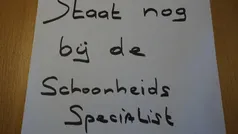 Staat nog
bij de
Schoonheids
Specialist